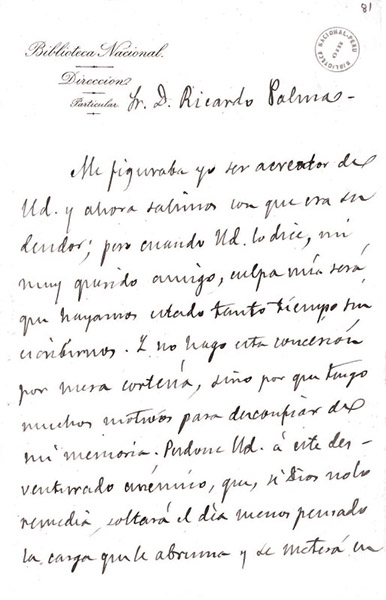 81
Biblioteca Nacional.
Direccion
Particular
BIBLIOTECA NACIONAL-PERU
Sr. D. Ricardo Palma-
Me figuraba yo ser acreedor de
Ud. y ahora salimos con que era su
deudor; pero cuando Ud. lo dice, mi
muy querido amigo, culpa mía será
que hayamos estado tanto tiempo sin
escribirnos. Y no hago esta concesión
por mera cortesía, sino por que tengo
muchos motivos para desconfiar de
mi memoria. Perdone Ud. á este des-
venturado anémico, que, si Dios no lo
remedia, soltará el día menos pensado
la carga que le abruma y se meterá en